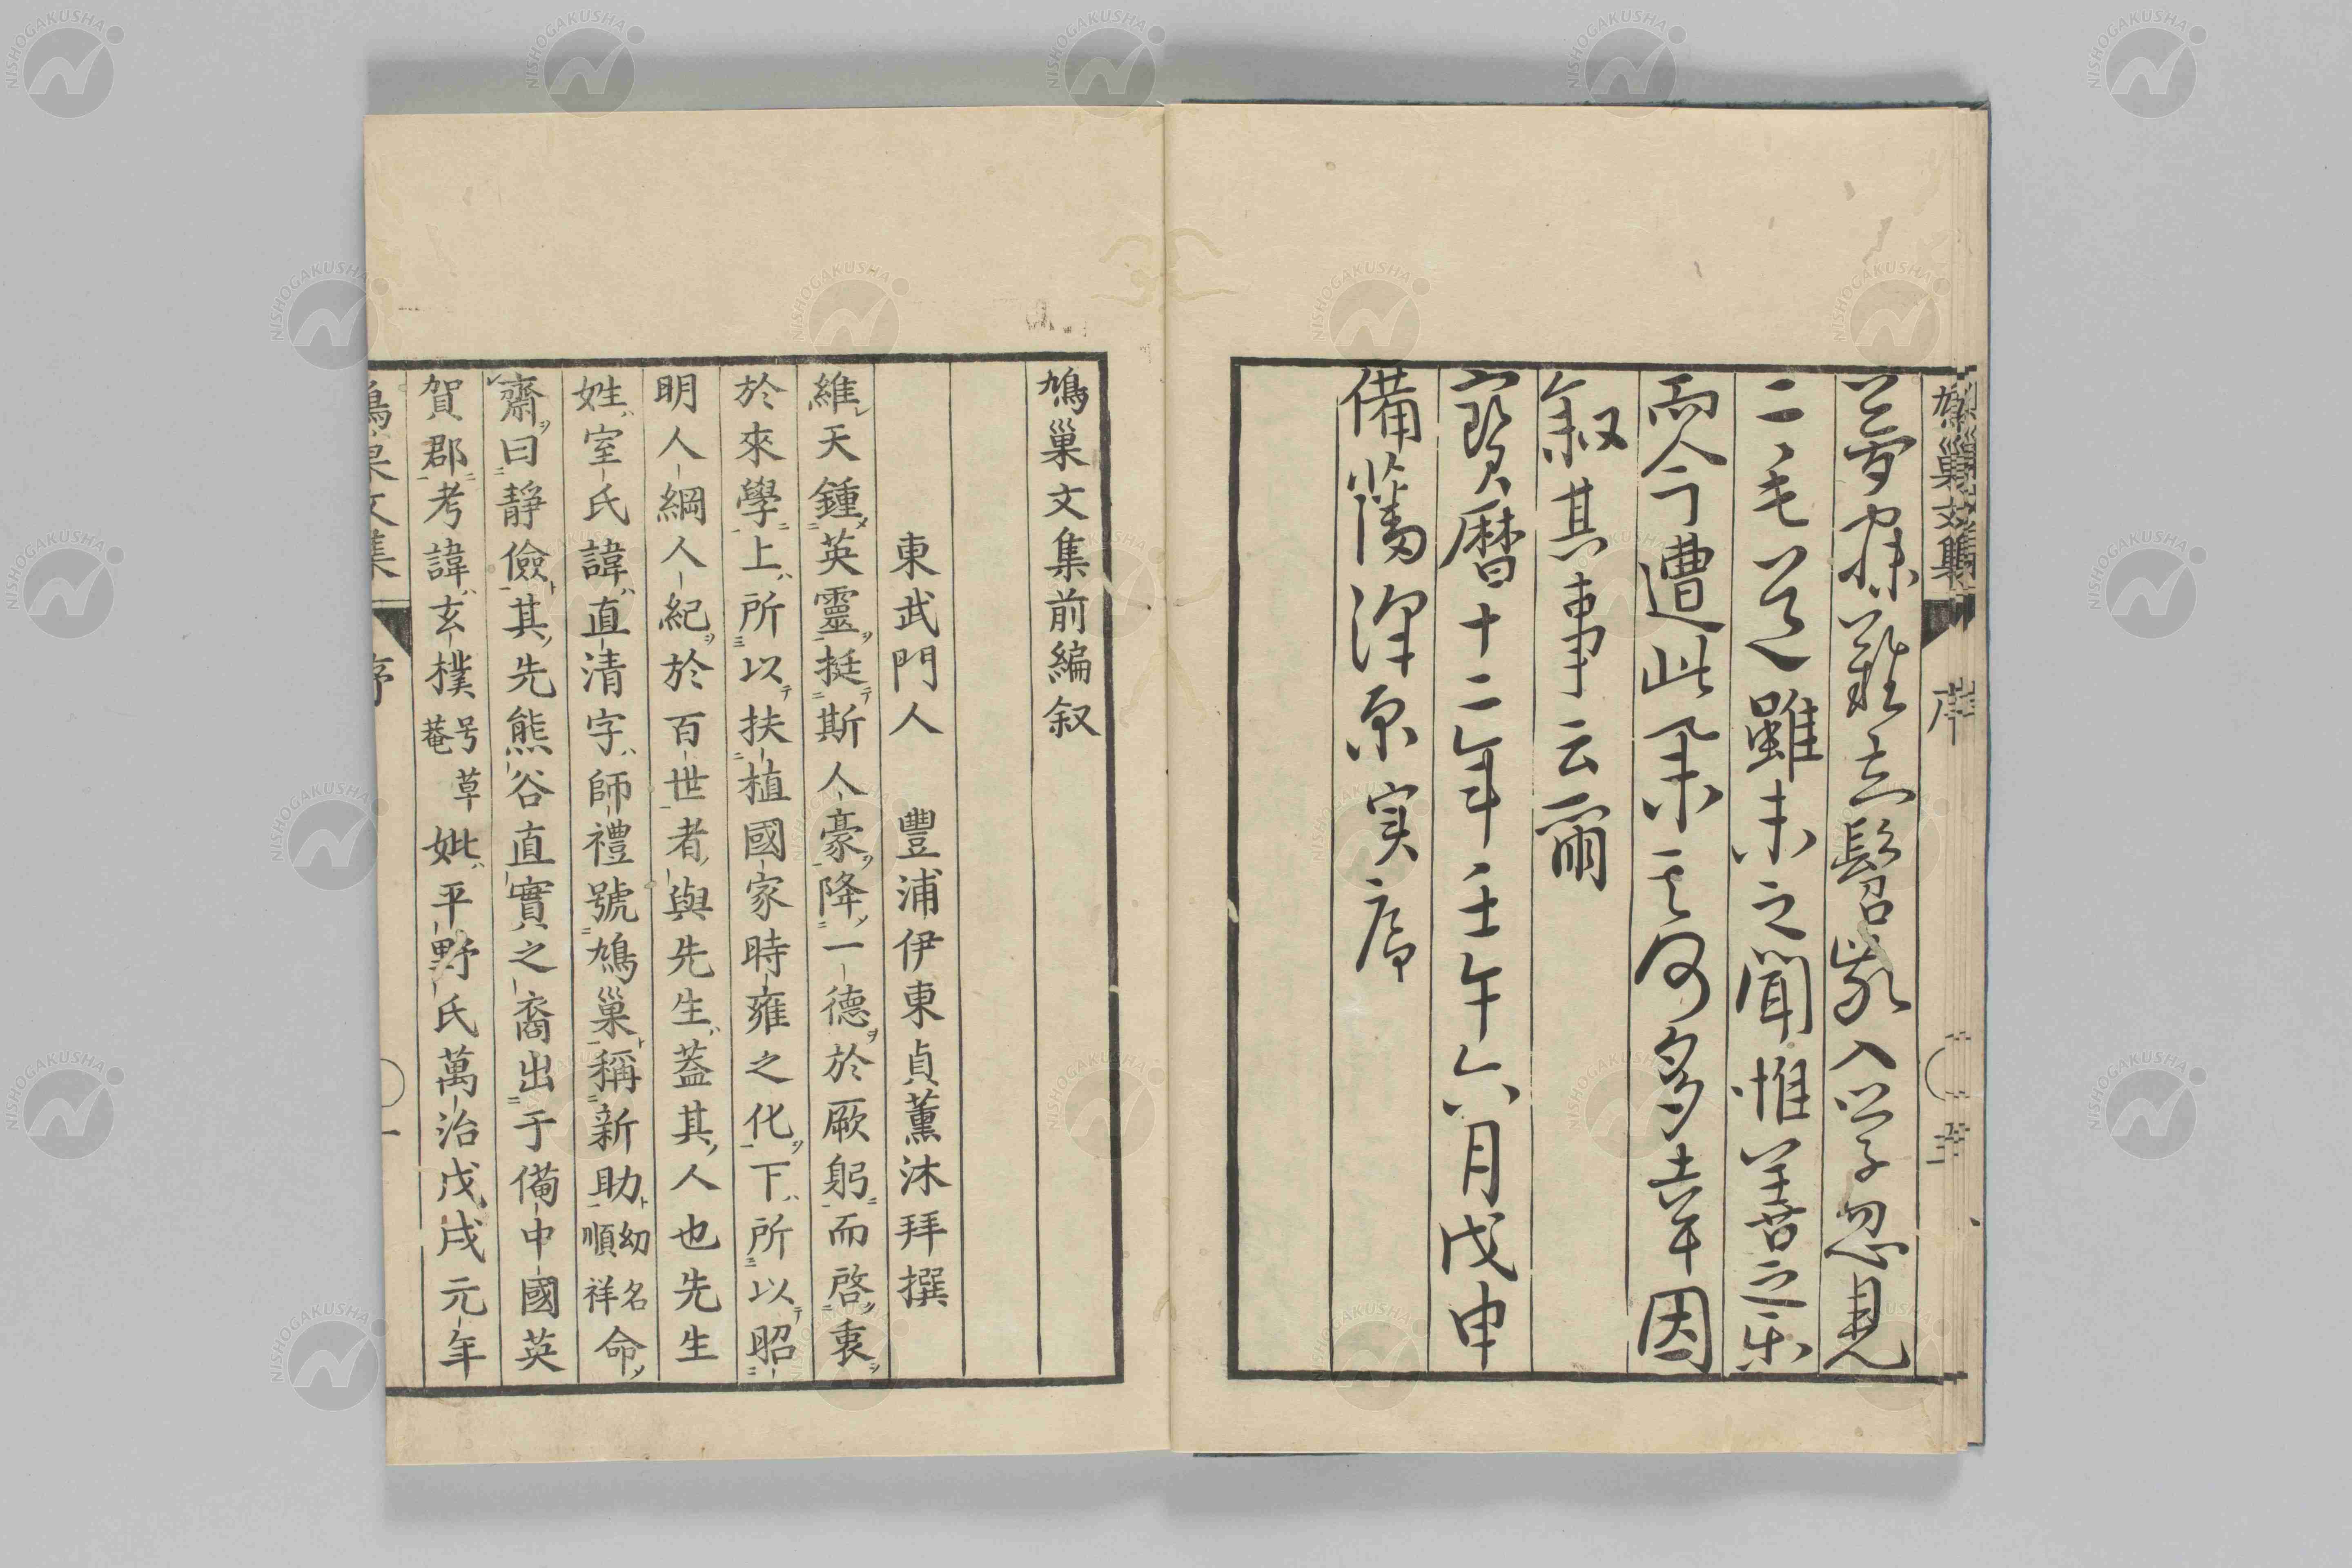 夢寐難忘髫齔入學忽見
二毛道雖未之聞惟善之樂
而今遭此果云何多幸因
叙其事云爾
寶曆十二年壬午六月戊申
備藩深原実序
鳩巢文集 序
鳩巢文集前編叙
東武門人 豐浦伊東貞薰沐拜撰
維天鍾英靈挺斯人豪降一德於厥躬而啓衷
於來學上所以扶植國家時雍之化下所以昭
明人綱人紀於百世者與先生蓋其人也先生
姓室氏諱直清字師禮號鳩巢稱新助幼名順祥命
齋曰靜儉其先熊谷直實之裔出于備中國英
賀郡考諱玄樸号草菴妣平野氏萬治戊戌元年
鳩巢文集 序 一
NISHOGAKUSHA